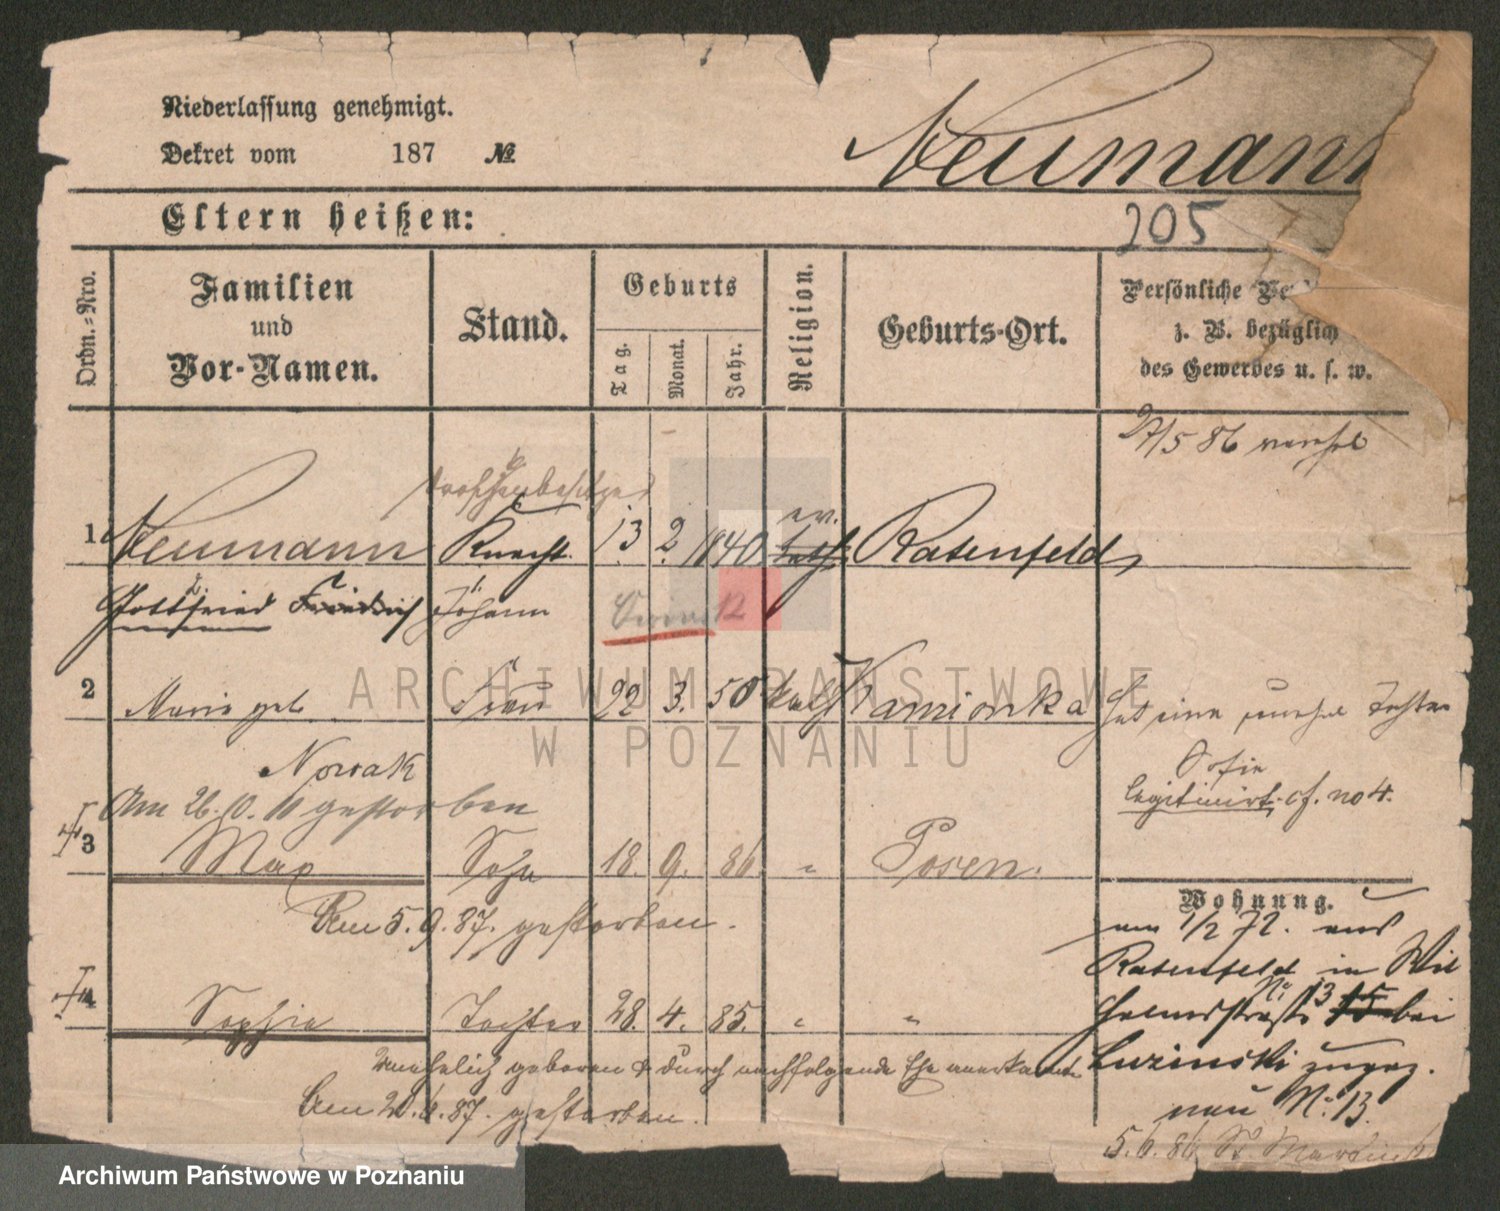 Niederlassung genehmigt.
Dekret vom 187 №
Neumann
Eltern heißen:
205
Ordn.-Nro.
Familien
und
Vor-Namen.
Stand.
Geburts
Tag.
Monat.
Jahr.
Religion.
Geburts-Ort.
Persönliche Ve
z. B. bezüglich
des Gewerbes u. s. w.
27/5 86 vereh
Droschkenbesitzer
ev.
1 Neumann Knecht 13 2. 1840 kath. Ratenfeld
Gottfried Friedrich Johann
2 Marie geb. Frau 22 3. 50 kath Kamionka Hat eine unehel Tochter
Nowak
Sofie
legitimirt. cf. no 4.
Am 26.10.11 gestorben
† 3 Max Sohn 18. 9. 86. " Posen.
Am 5. 9. 87. gestorben.
Wohnung.
am 1/2 72. aus
Ratenfeld in Wil
helmstraße No 13 15 bei
Luzinski zugez.
neu No 13
5.6.86 St Martin 6
† 4 Sophie Tochter 28. 4. 85. " "
unehelich geboren & durch nachfolgende Ehe anerkannt
Am 28.6.87. gestorben.
ARCHIWUM PAŃSTWOWE
W POZNANIU
Archiwum Państwowe w Poznaniu